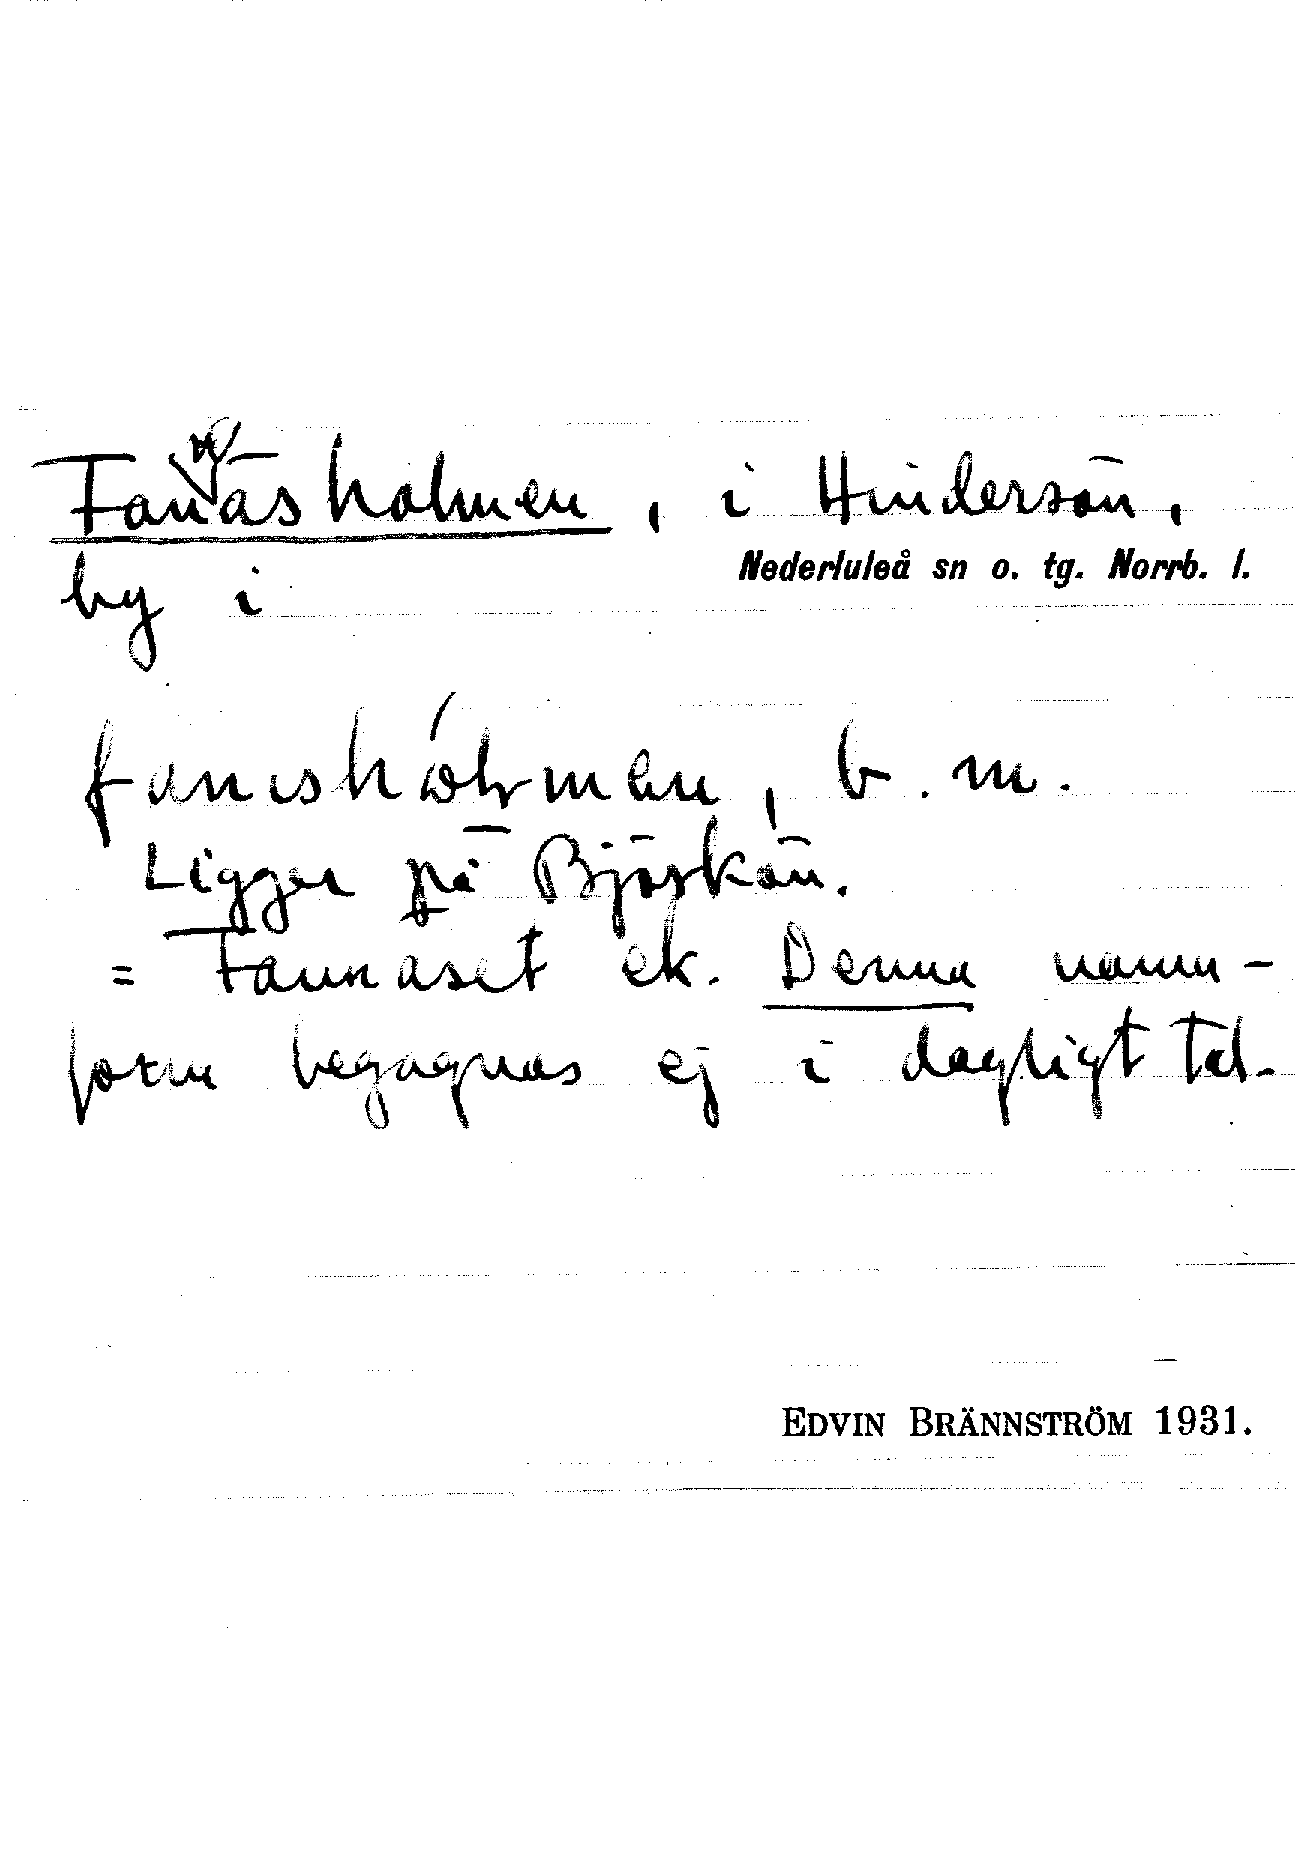 Fannäsholmen, i Hindersön,
by i Nederluleå sn o. tg. Norrb. l.
b. m.
Ligger på Björkön.
= Fannaset ek. Denna namn-
form begagnas ej i dagligt tal.
EDVIN BRÄNNSTRÖM 1931.